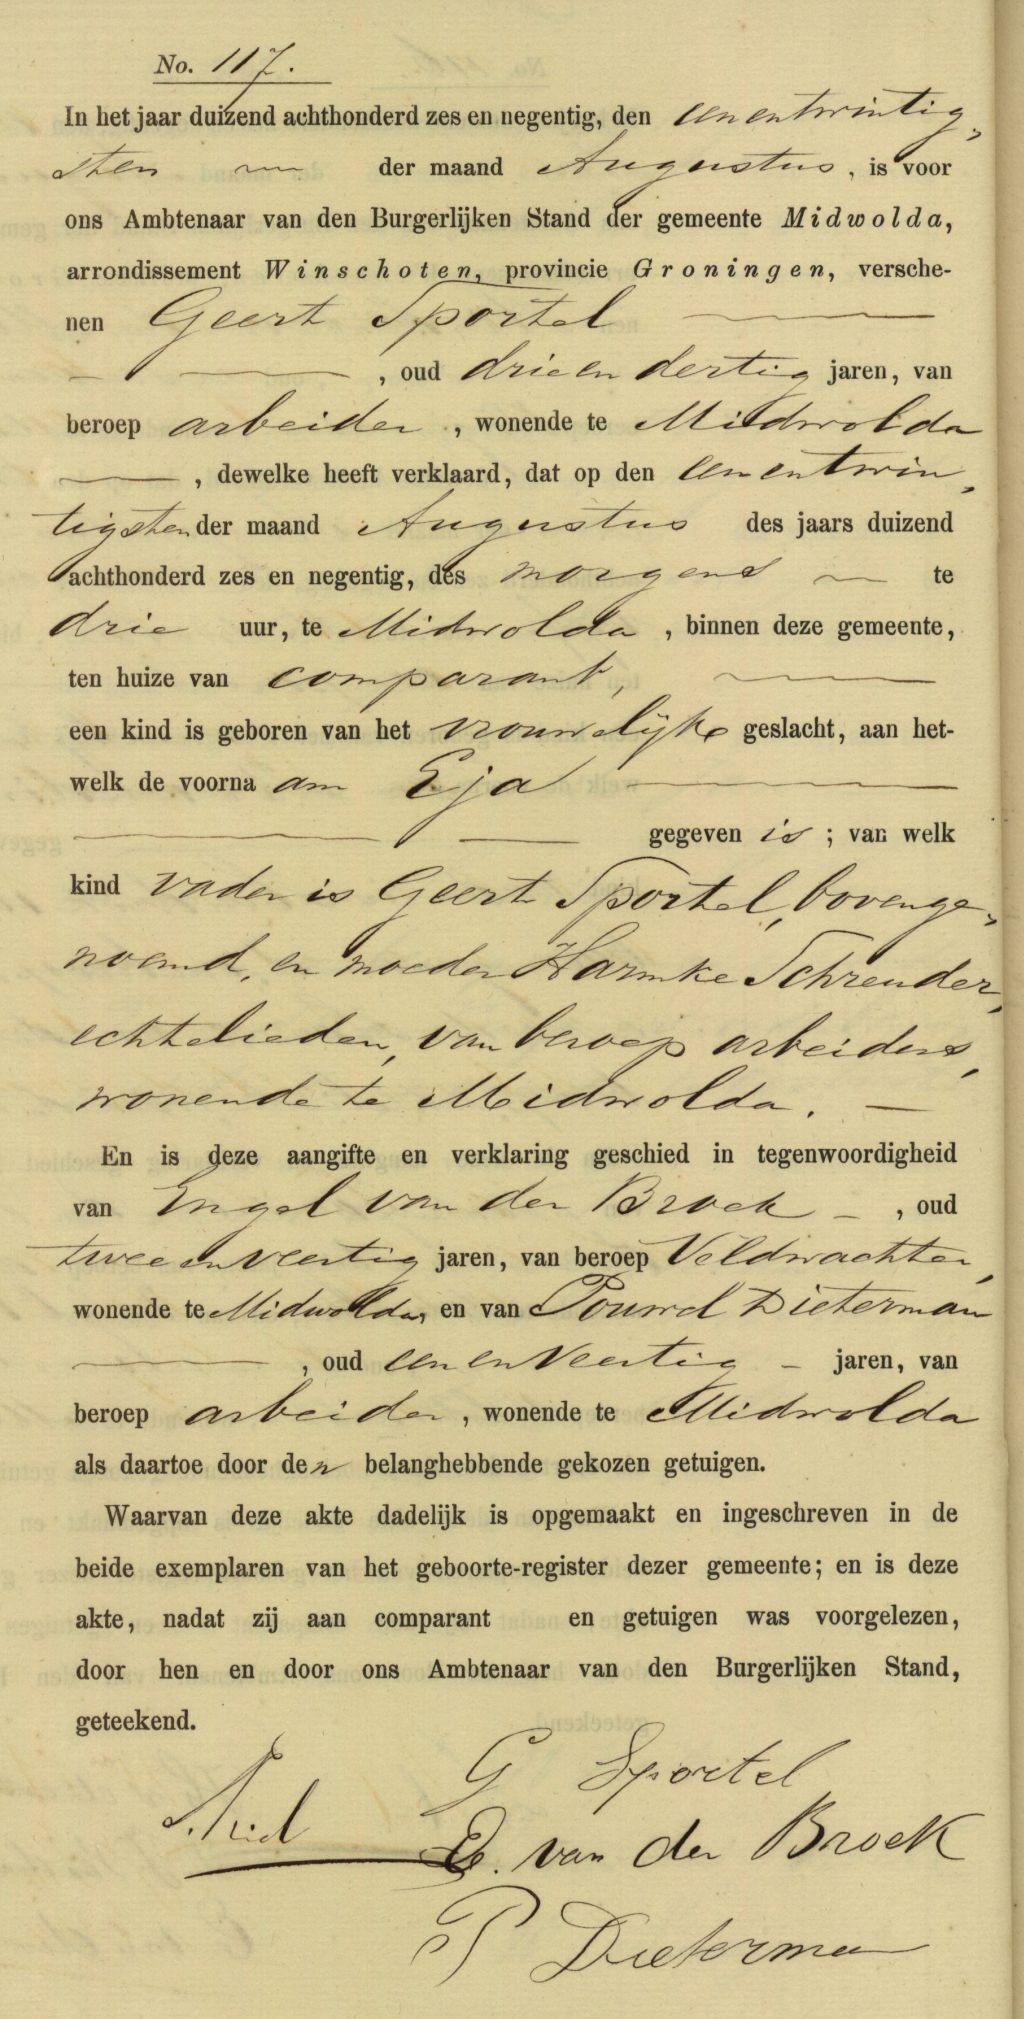 No. 117.
In het jaar duizend achthonderd zes en negentig, den eenentwintig-
sten der maand Augustus, is voor
ons Ambtenaar van den Burgerlijken Stand der gemeente Midwolda,
arrondissement Winschoten, provincie Groningen, versche-
nen Geert Sportel
, oud drieendertig jaren, van
beroep arbeider, wonende te Midwolda
, dewelke heeft verklaard, dat op den eenentwin-
tigsten der maand Augustus des jaars duizend
achthonderd zes en negentig, des morgens te
drie uur, te Midwolda, binnen deze gemeente,
ten huize van comparant,
een kind is geboren van het vrouwelijke geslacht, aan het-
welk de voornaam Eja
gegeven is; van welk
kind vader is Geert Sportel, bovenge-
noemd, en moeder Harmke Schreuder,
echtelieden, van beroep arbeiders,
wonende te Midwolda.
En is deze aangifte en verklaring geschied in tegenwoordigheid
van Engel van der Broek, oud
tweeenveertig jaren, van beroep Veldwachter,
wonende te Midwolda, en van Pouwel Dieterman
, oud eenenveertig jaren, van
beroep arbeider, wonende te Midwolda
als daartoe door den belanghebbende gekozen getuigen.
Waarvan deze akte dadelijk is opgemaakt en ingeschreven in de
beide exemplaren van het geboorte-register dezer gemeente; en is deze
akte, nadat zij aan comparant en getuigen was voorgelezen,
door hen en door ons Ambtenaar van den Burgerlijken Stand,
geteekend.
G Sportel
E. van der Broek
P Dieterman